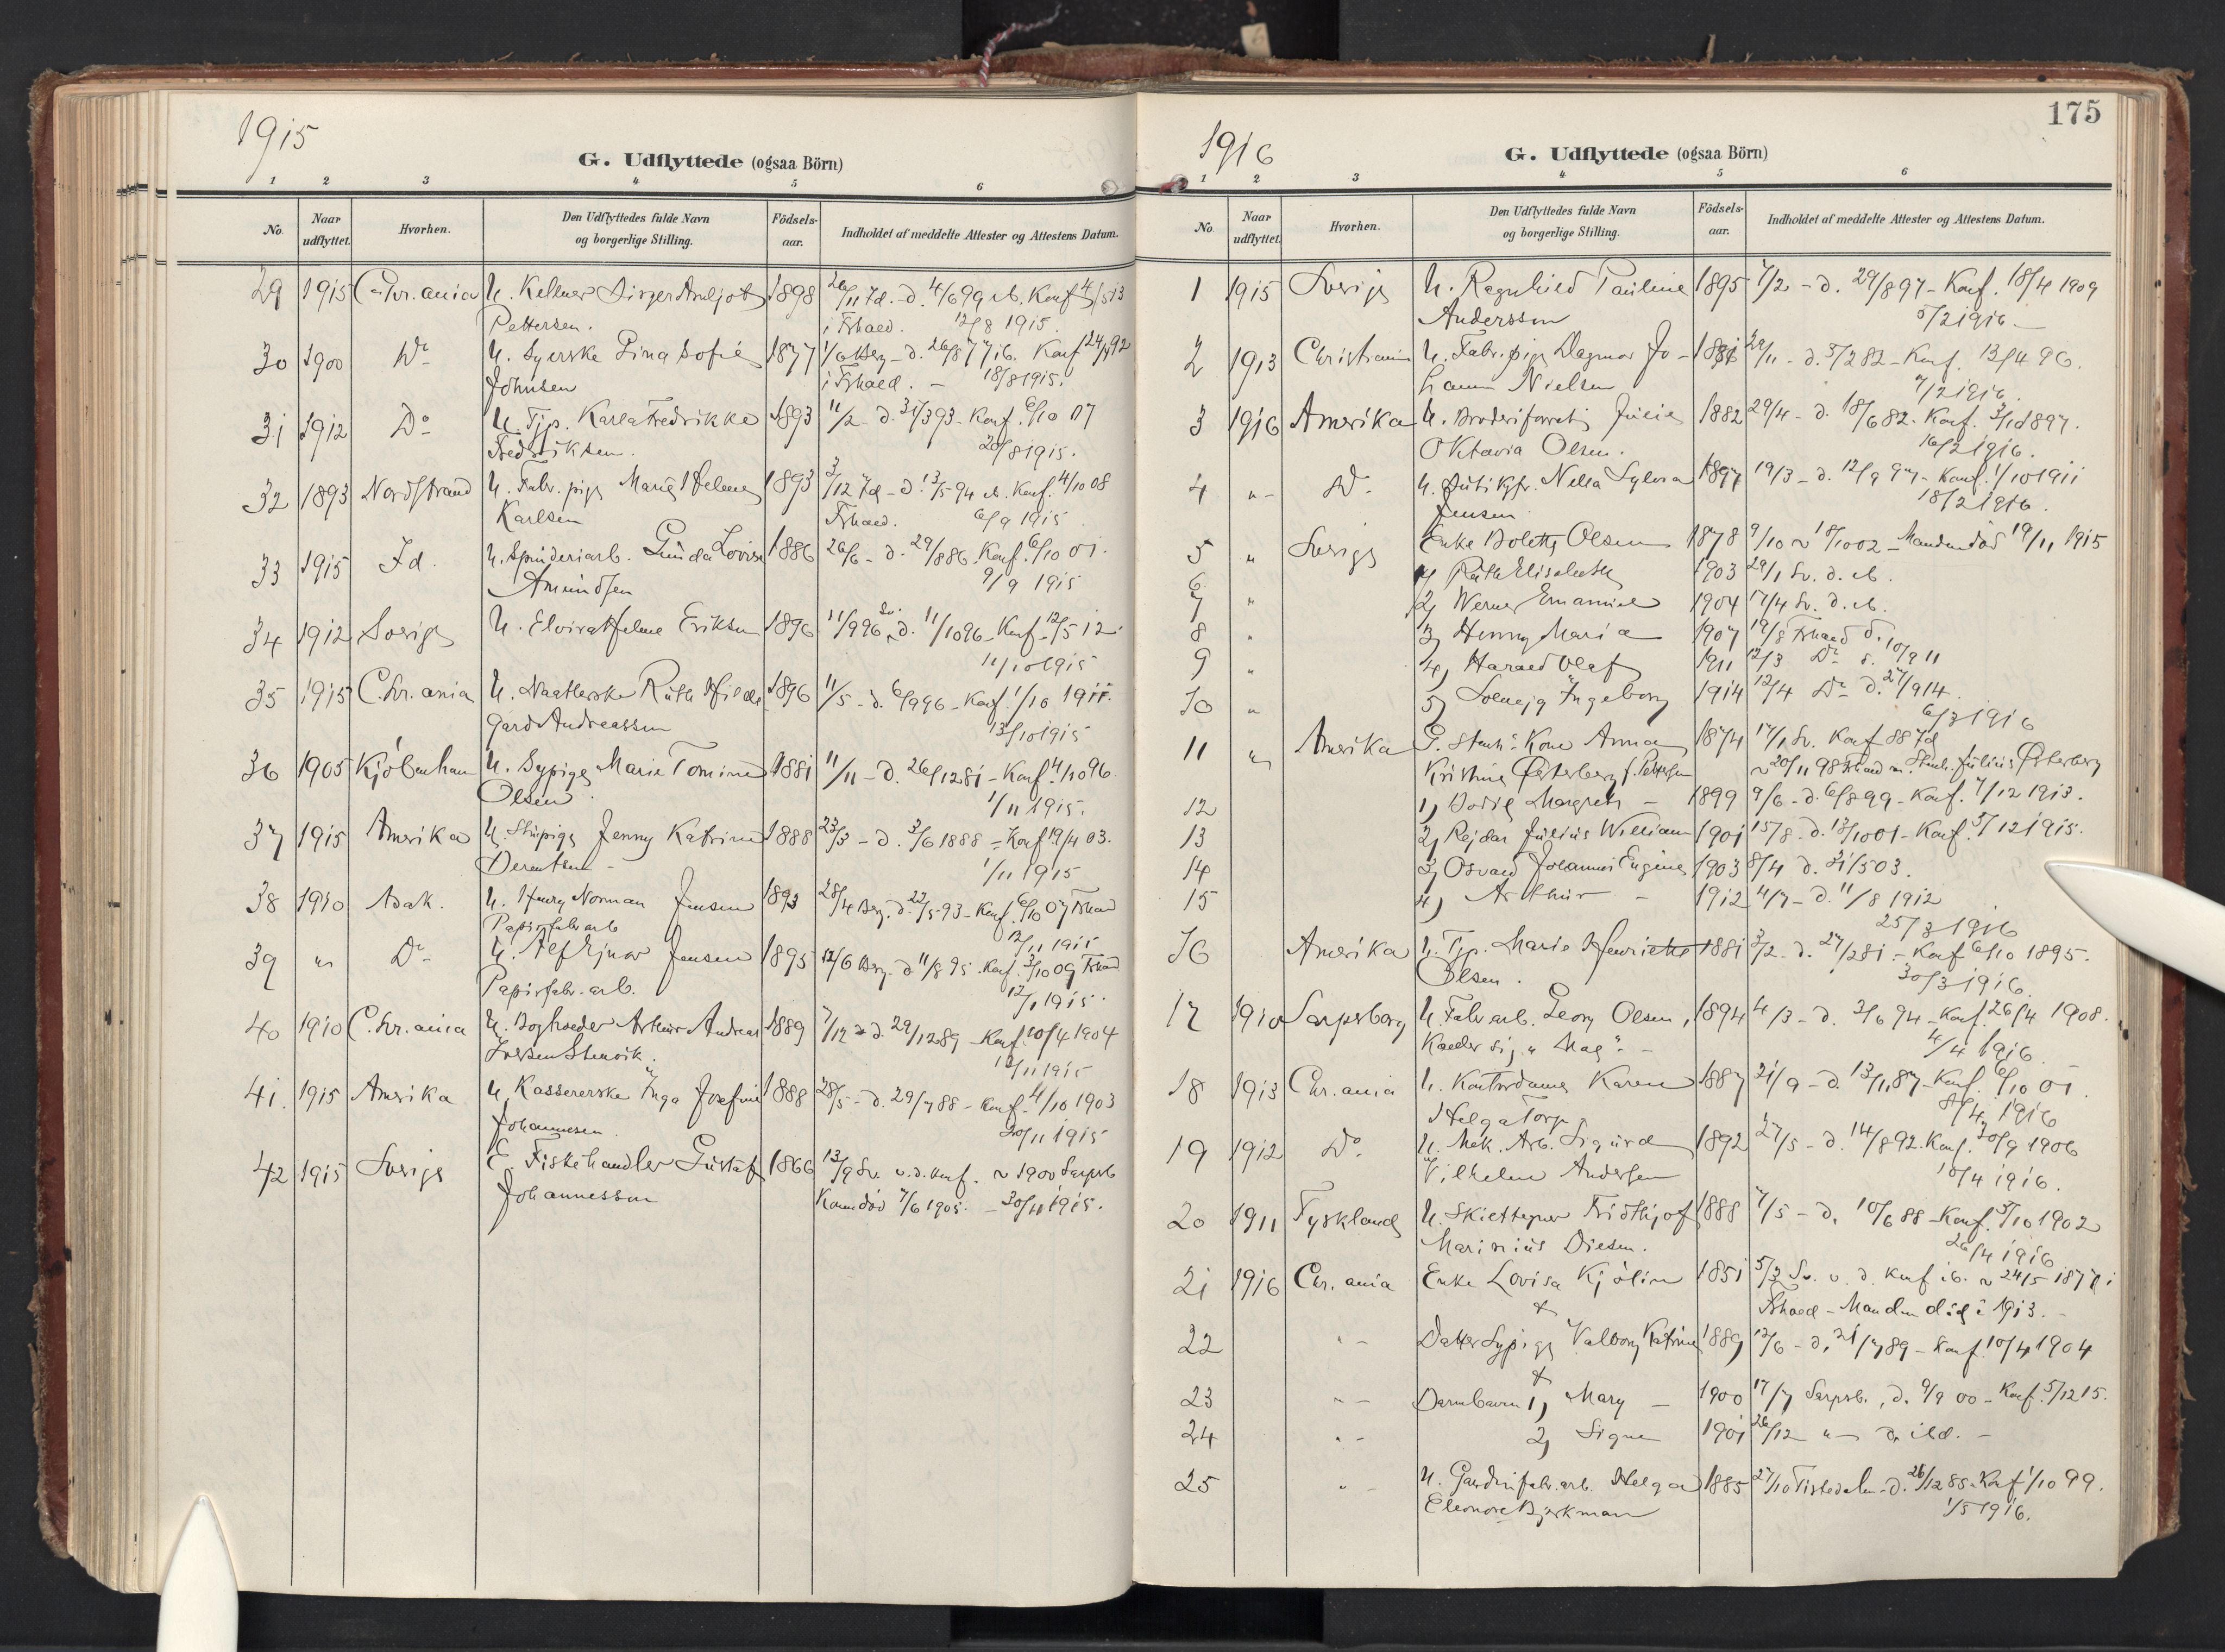 1915
G. Udflyttede (ogsaa Börn)
1 2 3 4 5 6
No. Naar udflyttet. Hvorhen. Den Udflyttedes fulde Navn og borgerlige Stilling. Födsels-aar. Indholdet af meddelte Attester og Attestens Datum.
29 1915 Chr.ania U. Kellner Birger Arnljot 1898 26/11 Id. d. 4/6 99 ib. Konf 4/5 13
Pettersen. i Fhald. 12/8 1915.
30 1900 Do U. Syerske Lina Sofie 1877 1/6 Berg d. 26/8 77 ib. Konf 24/4 92
Johnsen i Fhald. - 18/8 1915.
31 1912 Do U. Tjp. Karla Fredrikke 1893 11/2 d. 31/3 93 - Konf. 6/10 07
Fredriksen. 20/8 1915.
32 1893 Nordstrand U. Fabr. pige Marie Helene 1893 3/12 Id - d. 13/5 94 ib. Konf. 4/10 08
Karlsen Fhald. 6/9 1915
33 1915 Id. U. Spinderiarb. Gunda Lovise 1886 26/6 - d. 29/8 86. Konf. 6/10 01.
Amundsen 9/9 1915
34 1912 Sverige U. Elvira Helene Eriksen 1896 11/9 96 Sv. d. 11/10 96 - Konf. 12/5 12.
11/10 1915
35 1915 C.hr.ania U. Naatlerske Ruth Hilde 1896 11/5 - d. 6/9 96 - Konf. 1/10 1911.
gard Andreassen 13/10 1915
36 1905 Kjöbenhavn U. Sypige Marie Tomine 1881 11/11 - d. 26/12 81 - Konf. 4/10 96.
Olsen. 1/11 1915.
37 1915 Amerika U. Stuepige Jenny Katrine 1888 23/3 - d. 3/6 1888 - Konf. 19/4 03.
Berentsen - 1/11 1915
38 1910 Asak. U. Henry Norman Jensen 1893 28/4 Berg. d. 22/5 93 - Konf. 6/10 07 Fhald
Papirfabr. arb 12/11 1915
39 " Do U. Alf Ejnar Jensen 1895 12/6 Berg. d. 11/8 95. Konf. 3/10 09 Fhald
Papirfabr. arb. 12/11 1915.
40 1910 C.hr.ania U. Bogholder Arthur Andreas 1889 7/12 - d. 29/12 89 - Konf. 10/4 1904
Iversen Stenvik. 18/11 1915
41. 1915 Amerika U. Kassererske Inga Josefine 1888 28/5 - d. 29/7 88 - Konf. 4/10 1903
Johannesen. 20/11 1915
42 1915 Sverige E. Fiskehandler Gustaf 1866 13/9 Sv. v. d. konf. ~ 1900 Sarpsb
Johannesson Konen död 7/6 1905. - 30/11 1915.
175
1916
G. Udflyttede (ogsaa Börn)
1 2 3 4 5 6
No. Naar udflyttet. Hvorhen. Den Udflyttedes fulde Navn og borgerlige Stilling. Födsels-aar. Indholdet af meddelte Attester og Attestens Datum.
1 1915 Sverige U. Ragnhild Pauline 1895 7/2 - d. 29/8 97 - Konf. 18/4 1909
Andersson 5/2 1916 -
2 1913 Christiania U. Fabr. pige Dagmar Jo- 1881 29/11 - d. 5/2 82 - Konf. 13/4 96.
hanne Nielsen 7/2 1916.
3 1916 Amerika U. Broderiforretn. Julie 1882 29/4 - d. 18/6 82 - Konf. 1897.
Oktavia Olsen. 16/2 1916.
4 " - Do U. Butikjfr. Nella Sylvia 1897 19/3 - d. 12/9 97 - Konf. 1/10 1911
Jensen 18/2 1916.
5 " Sverige Enke Bolette Olsen 1878 9/10 ~ 18/10 02 - Manden död 19/11 1915
6 1) Ruth Elisabeth 1903 29/1 Sv. d. ib.
7 " 2) Werner Emanuel 1904 17/4 Sv. d. ib.
8 " 3) Henny Maria 1907 19/8 Fhald d.
9 " 4) Harald Olaf 1911 12/3 Do d. 10/9 11
10 " 5) Solvejg Ingeborg 1914 12/4 Do d. 27/9 14.
6/3 1916
11 " Amerika G. Stenh. Kone Anna 1874 17/1 Sv. Konf 88 Id
Kristine Österberg f. Pettersen ~ 20/11 98 Fhald m. Stenh. Julius Österberg
12 1) Bodil Margrete - 1899 9/6 - d. 6/8 99 - Konf. 7/12 1913.
13 2) Rejdar Julius William 1901 15/8 - d. 13/10 01 - Konf. 5/12 1915.
14 3) Osvald Johannes Eugene 1903 8/4 d. 31/5 03.
15 4) Arthur - 1912 4/7 - d. 11/8 1912
25/3 1916
16 Amerika U. Tjp. Marie Henriette 1881 3/2 - d. 27/2 81 - Konf 6/10 1895.
Olsen. 30/3 1916.
17 1910 Sarpsborg U. Fabr. arb. Georg Olsen, 1894 4/3 - d. 3/6 94 - Konf. 26/4 1908.
Kalder sig "Mag". - 4/4 1916.
18 1913 Chr.ania U. Kontordame Karen 1887 21/9 - d. 13/11 87 - Konf. 6/10 01.
Helga Torp 8/4 1916
19 1912 Do U. Mek. Arb. Sigurd 1892 27/5 - d. 14/8 92. Konf. 30/9 1906
Vilhelm Andersen 10/4 1916.
20 1911 Tyskland U. Skiltegner Fridthjof 1888 7/5 - d. 10/6 88 - Konf. 5/10 1902
Marinius Diesen. 26/4 1916
21 1916 Chr.ania Enke Lovisa Kjölin 1851 5/3 Sv. v. d. Konf ib. ~ 24/5 1877 i
& Fhald - Manden död i 1913. -
22 " - Datter Sypige Valborg Katrine 1889 12/6 - d. 21/7 89 - Konf. 10/4 1904
&
23 " - Barnebarn 1) Mary - 1900 17/7 Sarpsb., d. 9/9 00 - Konf. 5/12 15.
24 " - 2) Signe 1901 26/12 " d. ibd. -
25 " - U. Gardinfabr. arb. Helga 1885 27/10 Tistedalen - d. 26/12 85. Konf 1/10 99.
Eleonore Bjerkman 1/5 1916.